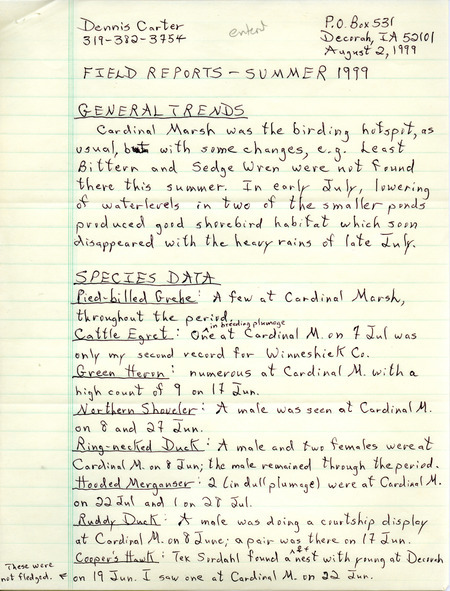 Dennis Carter
P.O. Box 531
319-382-3754
Decorah, IA 52101
August 2, 1999
FIELD REPORTS - SUMMER 1999
GENERAL TRENDS
Cardinal Marsh was the birding hotspot, as
usual, but with some changes, e.g. Least
Bittern and Sedge Wren were not found
there this summer. In early July, lowering
of waterlevels in two of the smaller ponds
produced good shorebird habitat which soon
disappeared with the heavy rains of late July.
SPECIES DATA
Pied-billed Grebe: A few at Cardinal Marsh,
throughout the period.
Cattle Egret: One ^in breeding plumage at Cardinal M. on 7 Jul was
only my second record for Winneshiek Co.
Green Heron: numerous at Cardinal M. with a
high count of 9 on 17 Jun.
Northern Shoveler: A male was seen at Cardinal M.
on 8 and 27 Jun.
Ring-necked Duck: A male and two females were at
Cardinal M. on 8 Jun; the male remained through the period.
Hooded Merganser: 2 (in dull plumage) were at Cardinal M.
on 22 Jul and 1 on 28 Jul.
Ruddy Duck: A male was doing a courtship display
at Cardinal M. on 8 June; a pair was there on 17 Jun.
Cooper's Hawk: Tex Sordahl found a nest with young at Decorah
on 19 Jun. I saw one at Cardinal M. on 22 Jun.
These were
not fledged.